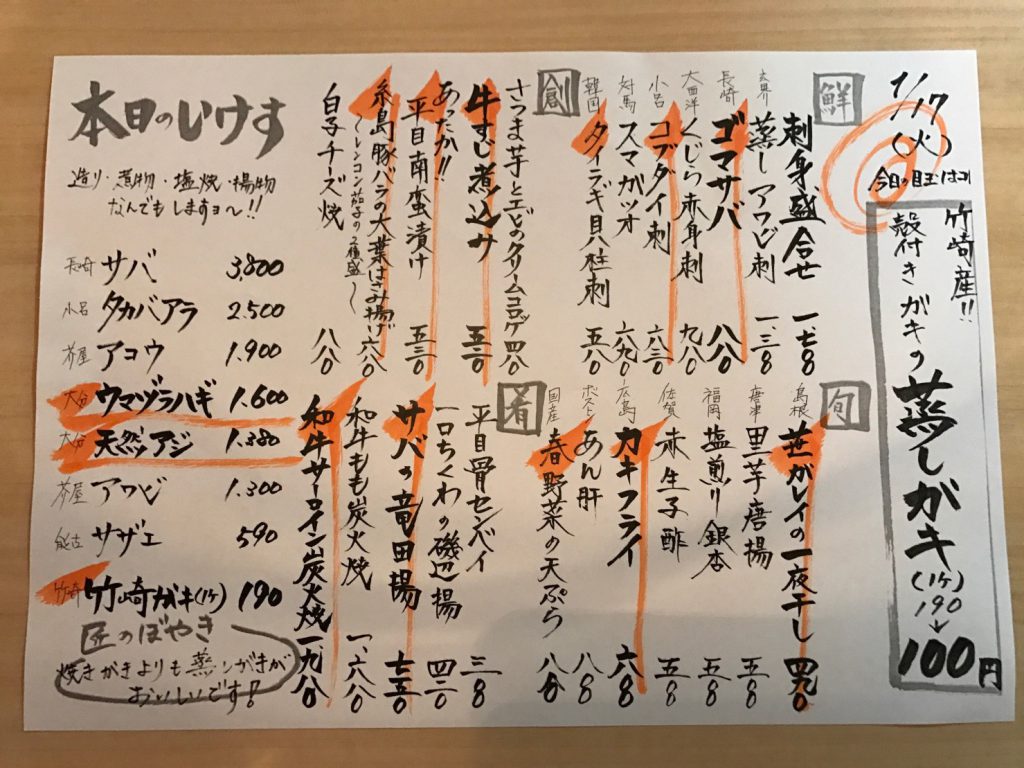 1/17(火)
今日の目玉はコレ
竹崎産!!
殻付きガキの蒸しガキ(1ケ)190→100円
鮮
刺身盛合せ 一、七八〇
玄界 蒸しアワビ刺 一、三八〇
長崎 ゴマサバ 八八〇
大西洋 くじら赤身刺 九八〇
小呂 コブダイ刺 六三〇
対馬 スマガツオ 六九〇
韓国 タイラギ貝柱刺 五八〇
創
さつま芋とエビのクリームコロッケ 四八〇
牛すじ煮込み 五三〇
あったか!!
平目南蛮漬け 五三〇
糸島豚バラの大葉はさみ揚げ 六八〇
〜レンコン茄子の2種盛〜
白子チーズ焼 八八〇
旬
島根 笹ガレイの一夜干し 四九〇
唐津 里芋唐揚 五八〇
福岡 塩煎り銀杏 五八〇
佐賀 赤生子酢 五八〇
広島 カキフライ 六八〇
ボストン あん肝 八八〇
国産 春野菜の天ぷら 八八〇
肴
平目骨センベイ 三八〇
一口ちくわの磯辺揚 四三〇
サバの竜田揚 七五〇
和牛もも炭火焼 一、六八〇
和牛サーロイン炭火焼 一、九八〇
本日のいけす
造り・煮物・塩焼・揚物
なんでもしますョ〜!!
長崎 サバ 3,800
小呂 タカバアラ 2.500
芥屋 アコウ 1.900
大分 ウマヅラハギ 1.600
大分 天然アジ 1.380
芥屋 アワビ 1.300
能古 サザエ 590
竹崎 竹崎ガキ(1ケ) 190
匠のぼやき
焼きがきよりも蒸しがきが
おいしいです!